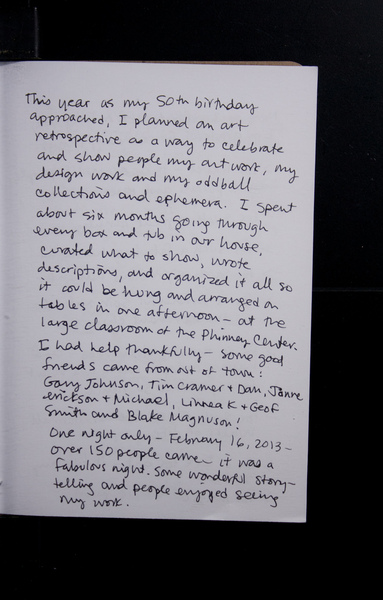 This year as my 50th birthday
approached, I planned an art
retrospective as a way to celebrate
and show people my art work, my
design work and my oddball
collections and ephemera. I spent
about six months going through
every box and tub in our house,
curated what to show, wrote
descriptions, and organized it all so
it could be hung and arranged on
tables in one afternoon - at the
large classroom at the Phinney Center.
I had help thankfully - some good
friends came from out of town:
Gary Johnson, Tim Cramer + Dan,
erickson + Michael, Linnea K + Geof
Smith and Blake Magnuson!
One night only - February 16, 2013 -
over 150 people came - it was a
fabulous night. Some wonderful story-
telling and people enjoyed seeing
my work.